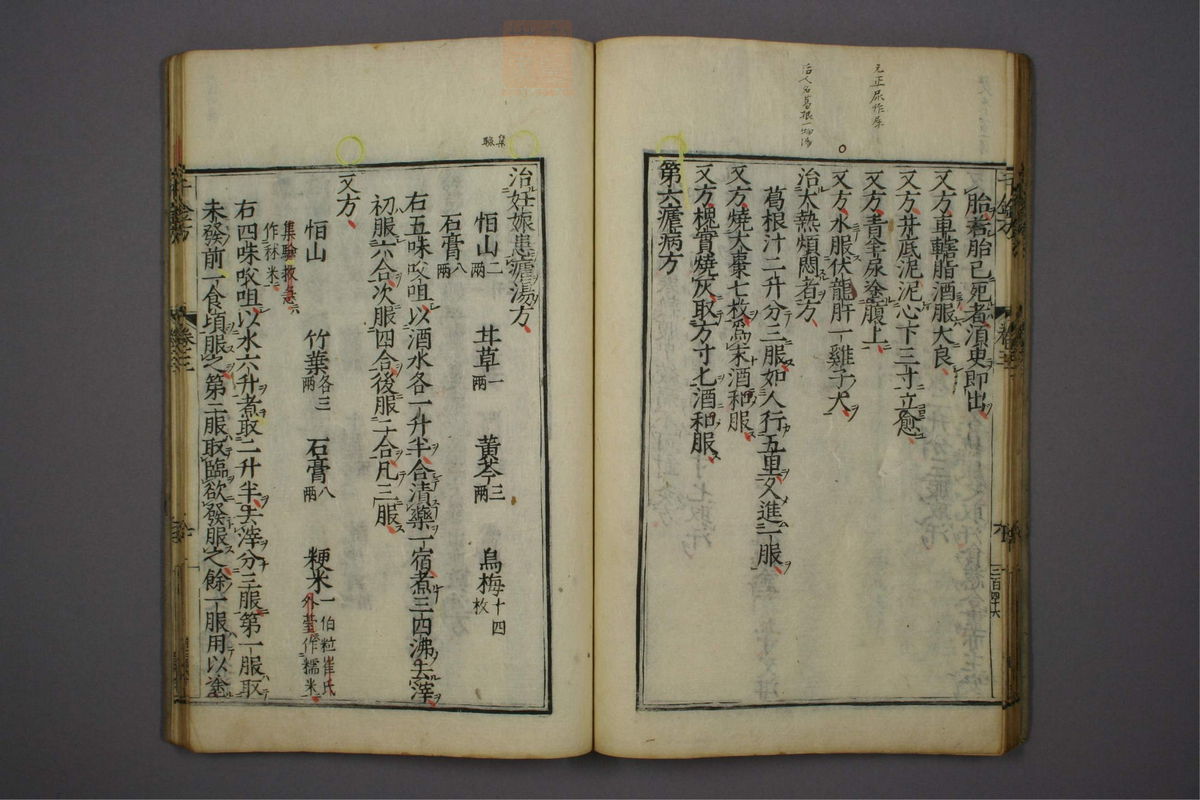 元正尿作屎
治人名葛根一物湯
胎著胎已死者湏史即出
又方車轄脂酒服大良
又方井底泥泥心下三寸立愈
又方青牛尿塗腹上
又方水服伏龍肝一雞子大
治大熱煩悶者方
葛根汁二升分三服如人行五里又進一服
又方燒大棗七枚為末酒和服
又方槐實燒灰取方寸匕酒和服
第六瘧病方
集驗
治妊娠患瘧湯方
恒山二兩 甘草一兩 黃芩三兩 烏梅十四枚
石膏八兩
右五味㕮咀以酒水各一升半合漬藥一宿煮三四沸去滓
初服六合次服四合後服二合凡三服
又方
恒山 竹葉各三兩 石膏八兩 粳米一伯粒崔氏外臺作糯米
集驗救急作秫米
右四味㕮咀以水六升煮取二升半去滓分三服第一服取
未發前一食頃服之第二服取臨欲發服之餘一服用以塗
千金方
卷三
三百四十六